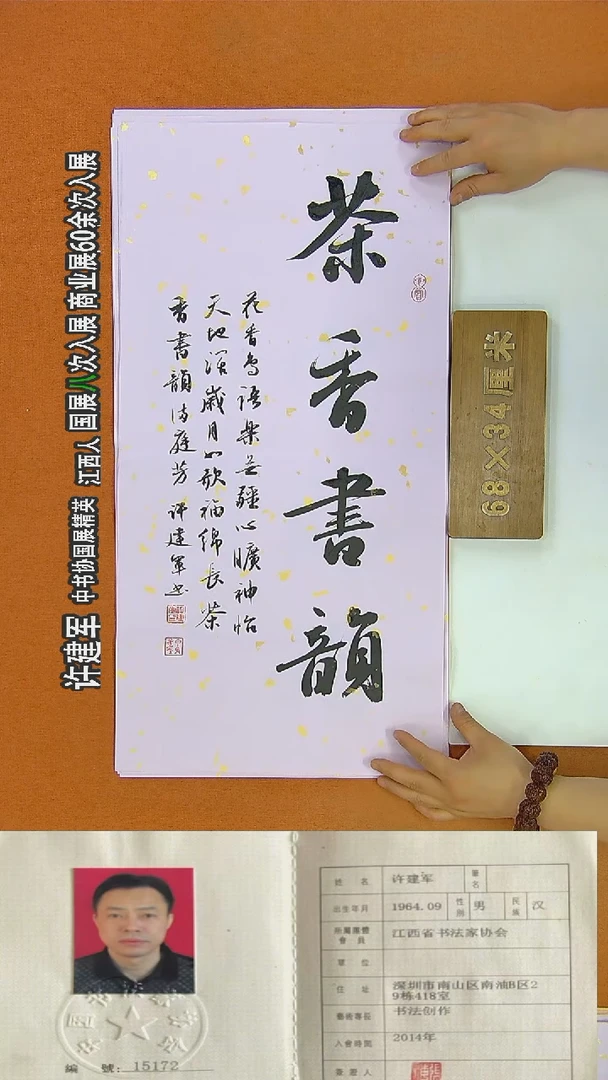 茶香書韻
花香鸟语乐无疆心曠神怡
天地深歲月如歌福绵长茶
香書韻诗庭芳 许建军书
68×34厘米
许建军 中书协国展精英 江西人 国展八次入展 商业展60余次入展
姓 名 许建军 筆名
出生年月 1964.09 性别 男 民族 汉
所屬團體會員 江西省书法家协会
單 位
住 址 深圳市南山区南油B区29栋418室
藝術專長 书法创作
入會時間 2014年
簽證人
編 號：15172